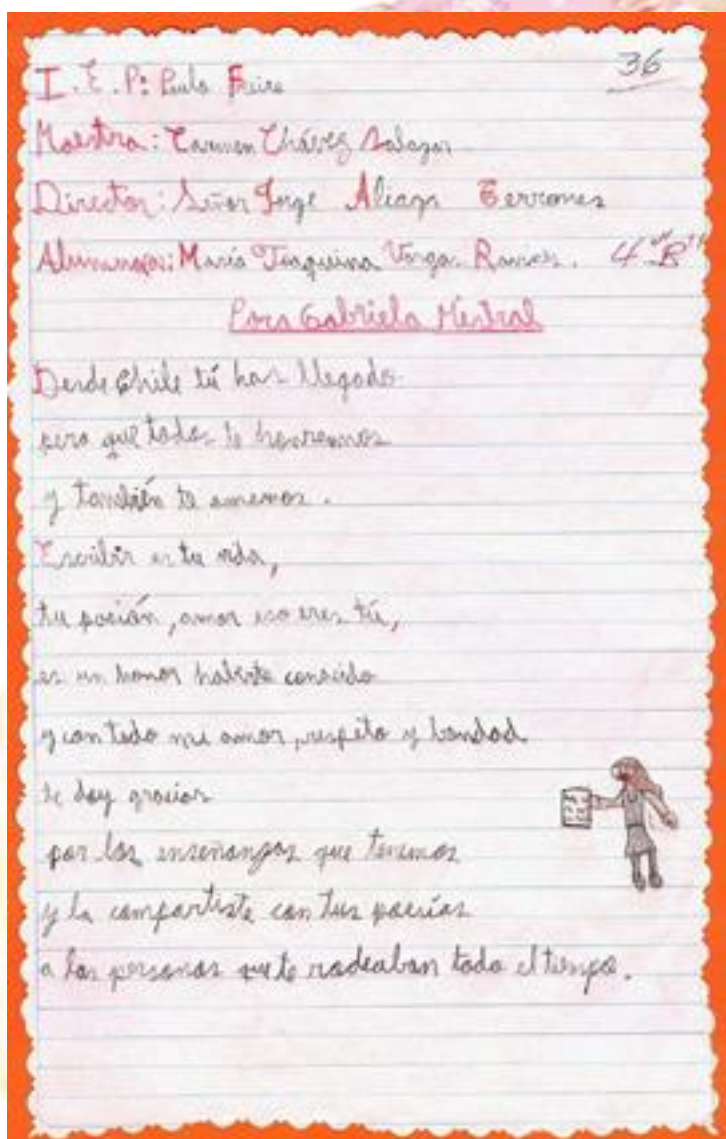 36
I.E.P: Paulo Freire
Maestra: Carmen Chávez Salazar
Director: Señor Jorge Aliaga Terrones
María Joaquina Vargas 4 "B"
Para Gabriela Mistral
Desde Chile tú has llegado
para que todos te honremos
y también te amemos.
Escribir es tu vida,
tu pasión, amor eso eres tú,
es un honor haberte conocido
y con todo mi amor, respeto y bondad
te doy gracias
por las enseñanzas que tenemos
y la compartiste con tus poesías
a las personas que te rodeaban todo el tiempo.